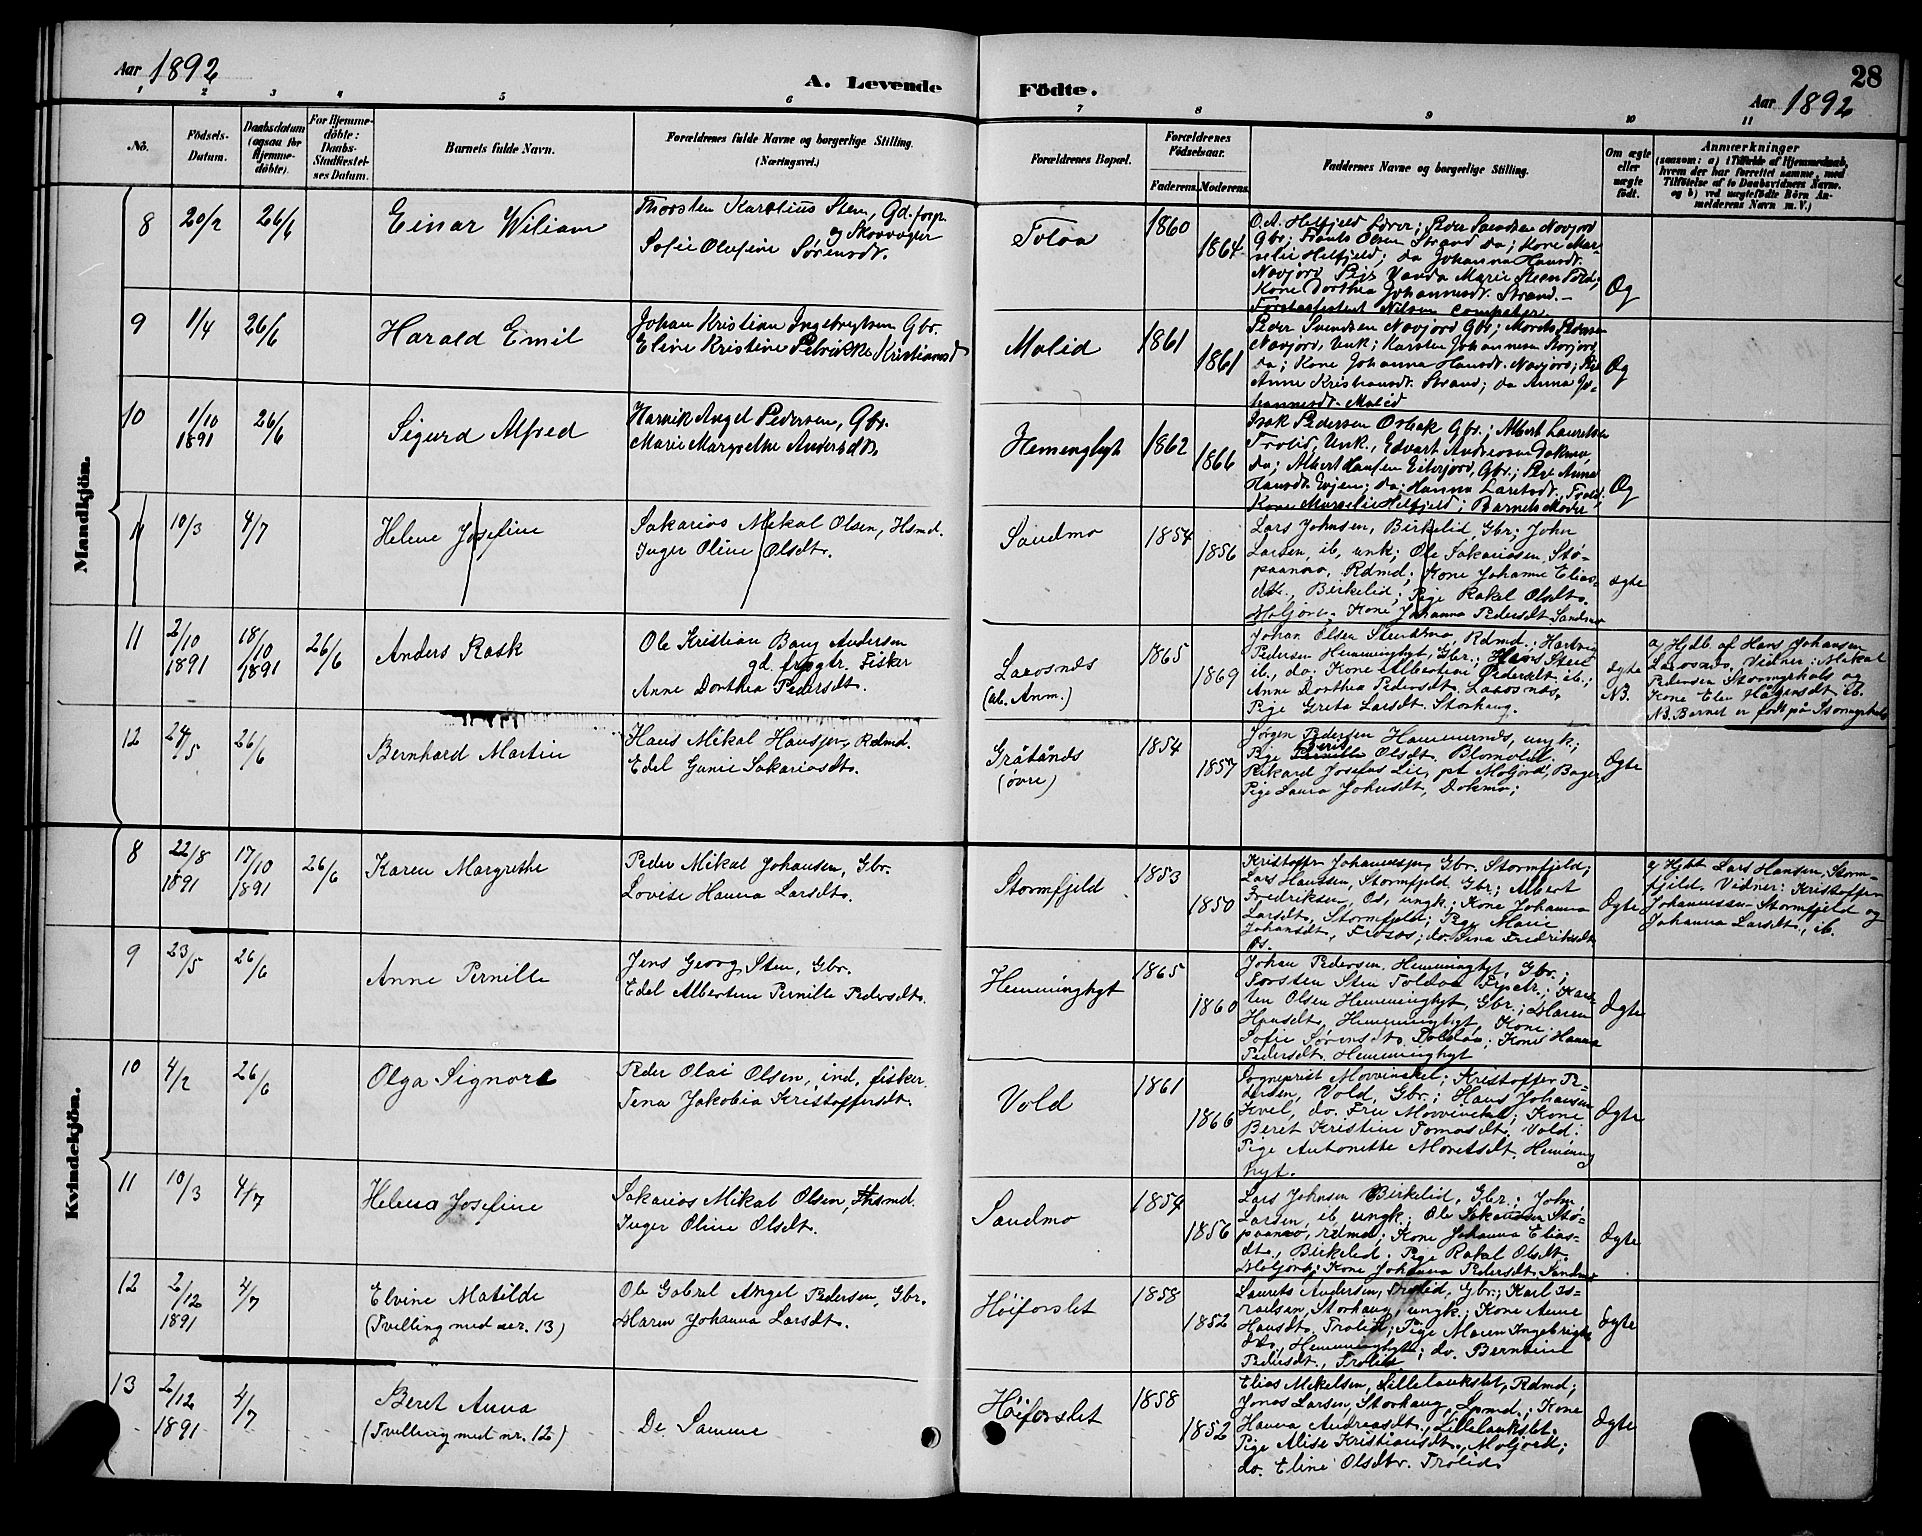 Aar 1892
A. Levende
Födte.
28
Aar 1892
1 2 3 4 5 6 7 8 9 10 11
No.
Födsels-
Datum.
Daabsdatum
(ogsaa for
Hjemme-
döbte).
For Hjemme-
döbte:
Daabs-
Stadfæstel-
ses Datum.
Barnets fulde Navn.
Forældrenes fulde Navne og borgerlige Stilling.
(Næringsvei.)
Forældrenes Bopæl.
Forældrenes
Födselsaar.
Faderens. Moderens.
Faddernes Navne og borgerlige Stilling.
Om ægte
eller
uægte
födt.
Anmærkninger
(saasom: a) i Tilfælde af Hjemmedaab,
hvem der har forrettet samme, med
Tilföielse af to Daabsvidners Navne,
og b) ved uægtefödte Börn An-
melderens Navn m. V.)
Mandkjön.
8 20/2 26/6 Einar Wiliam
Thorsten Karolius Steen, Gd. forp.
og Skovvogter
Sofie Olufine Sörensdt.
Toloa 1860 1864
O.A. Helfjeld Lærer; Peder Svendsen Novjord
Gbr; Frants Olsen Strand do; Kone Mar-
selie Helfjeld; do Johanna Hansdt.
Novjord Pige Vanda Marie Steen
Kone Dorthea Johannesdt. Strand.
Forstassistent Nilsen
Øg
9 1/4 26/6 Harald Emil
Johan Kristian Ingebrigtsen Gbr.
Eline Kristine Petrikke Kristiansdt
Molid 1861 1861
Peder Svendsen Novjord Gbr; Morits Pedersen
Novjord, Unk; Karsten Johannesen Storjord
do; Kone Johanna Hansdt. Novjord; Pige
Anne Kristiansdt. Strand; do Anna Jo-
hannesdt. Molid
Øg
10 1/10 1891 26/6 Sigurd Alfred
Harvik Angel Pedersen, Gbr.
Marie Margrethe Andersdt.
Hemenghyt 1862 1866
Isak Pedersen Osbak Gbr; Albert Lauritsen
Trolid, Unk., Edvart Andreasen Dokmo,
do; Albert Hansen Eiterjord, Gbr.; Pige Anna
Hansdt. Evjen; do: Hanna Larsdt. Trolid;
Kone Marselie Helfjeld; Barnets Moder
Øg
11 10/3 4/7 Helene Josefine
Sakarias Mikal Olsen, Hsmd.
Inger Oline Olsdt.
Sandmo 1854 1856
Lars Johnsen, Birkelid, Gbr; John
Larsen, ib, unk; Ole Sakariasen Stø-
paanæs, Rdmd; Kone Johanne Elias-
dt., Birkelid; Pige Rakel Olsdt.
Moljord; Kone Johanna Pedersdt. Sandmo
ægte
11 2/10 1891 18/10 1891 26/6 Anders Rask
Ole Kristian Bang Andersen
gd. frpgtr. Fisker
Anne Dorthea Pedersdt.
Laxosnes
(cb. Anm.)
1865 1869
Johan Olsen Stenmo, Rdmd; Hartvig
Pedersen Hemminghyt, Gbr.; Hans Steen
ib., do; Kone Albertine Pedersdt ib.;
Anne Dorthea Pedersdt. Laxosnes,
Pige Greta Larsdt. Storhaug.
ægte
NB.
a) Hjdb. af Hans Johansen
Laxosnes, Vidner: Mikal
Pedersen Stormyrhals og
Kone Elen Hågensdt. ib.
NB. Barnet er født på Stormyrhals
12 24/5 26/6 Bernhard Martin
Hans Mikal Hansen, Rdmd.
Edel Gunie Sakariasdt.
Gråtånes
(øvre)
1854 1857
Jørgen Pedersen Hammernes, ungk;
Pige Berit Olsdt. Blomolid.
Rikard Josefus Lie, pt Moljord, Bager
Pige Laura Johnsdt, Dokmo;
Øgte
Kvindekjön.
8 22/8 1891 17/10 1891 26/6 Karen Margrethe
Peder Mikal Johansen, Gbr.
Lovise Hanna Larsdt.
Stormfjeld 1853 1850
Kristoffer Johannesen, Gbr. Stormfjeld;
Lars Hanssen, Stormfjeld Gbr; Albert
Fredriksen, Os, ungk; Kone Johanna
Larsdt, Stormfjeld; Pige Marie
Johansdt, Frosos; do. Sina Fredriksdt
Os.
Øgte
a) Hjbt Lars Hansen, Storm-
fjeld. Vidner: Kristoffer
Johannessen Stormfjeld og
Johanna Larsdt., ib.
9 23/5 26/6 Anne Pernille
Jens Georg Sten, Gbr.
Edel Albertine Pernille Pedersdt.
Hemminghyt 1865 1860
Johan Pedersen, Hemminghyt, Gbr.;
Torsten Sten Toldoa Frpgtr.; Kars-
ten Olsen Hemminghyt, Gbr; Maren
Hansdt., Hemminghyt, Kone
Sofie Sørensdt. Toldoa; Kone Hanna
Pedersdt. Hemminghyt
Øgte
10 4/2 26/6 Olga Signore
Peder Olai Olsen, ind. fisker.
Tena Jakobia Kristoffersdt.
Vold 1861 1866
Sogneprist Movinckel; Kristoffer Pe-
dersen, Vold, Gbr; Hans Johansen
Kvel, do. Fru Movinckel; Kone
Beret Kristine Tomasdt, Vold;
Pige Antonette Moritsdt. Hemming
hyt.
Øgte
11 10/3 4/7 Helena Josefine
Sakarias Mikal Olsen, Hsmd.
Inger Oline Olsdt.
Sandmo 1854 1856
Lars Johnsen Birkelid, Gbr; John
Larsen, ib, ungk; Ole Sakariasen Stø-
paanæs, rdmd; Kone Johanna Elias-
dt., Birkelid; Pige Rakel Olsdt.
Moljord; Kone Johanna Pedersdt. Sandmo
Øgte
12 2/12 1891 4/7 Elvine Matilde
(Tvilling med nr. 13)
Ole Gabrel Angel Pedersen, Gbr.
Maren Johanna Larsdt.
Høiforslet 1858 1852
Laurits Andersen, Trolid, Gbr; Karl Is-
raelsen, Storhaug, ungk; Kone Anne
Hansdt. Trolid; Pige Maren Ingebrigts
dt., Hemminghyt; do. Berntine
Pedersdt., Trolid.
Øgte
13 2/12 1891 4/7 Beret Anna
(Tvilling med nr. 12)
De Samme
Høiforslet 1858 1852
Elias Mikelsen, Lillelankslet, Rdmd;
Jonas Larsen, Storhaug, Lsmd.; Kone
Hanna Andreasdt., Lillelankslet.
Pige Alise Kristiansdt., Moljord;
do. Eline Olsdtr. Trolid.
Øgte